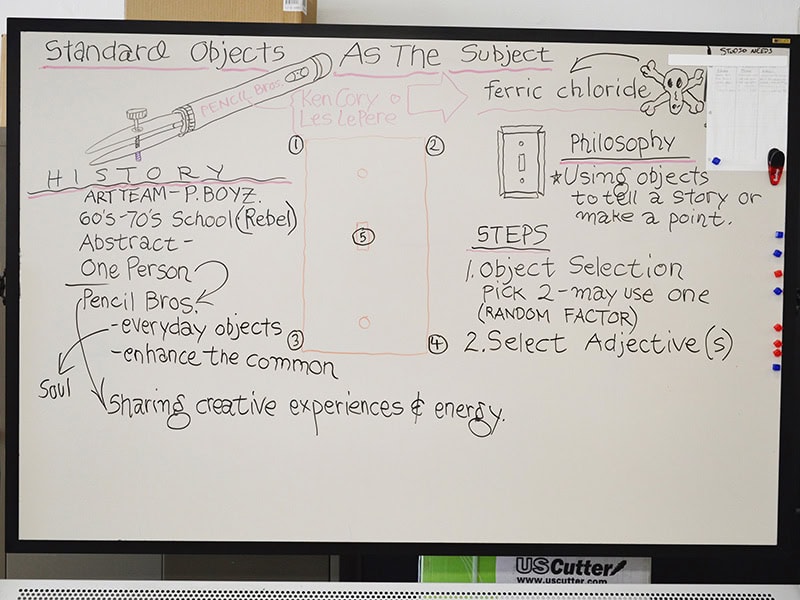 Standard Objects As The Subject
STUDIO NEEDS
PENCIL BROS.
Ken Cory
Les LePere
ferric chloride
1
2
3
4
5
HISTORY
ART TEAM - P. BOYZ.
60's-70's School (Rebel)
Abstract -
One Person
Pencil Bros.
-everyday objects
-enhance the common
Soul
Sharing creative experiences & energy.
Philosophy
Using objects
to tell a story or
make a point.
STEPS
1. Object Selection
Pick 2 - may use one
(RANDOM FACTOR)
2. Select Adjective(s)
USCutter
www.uscutter.com